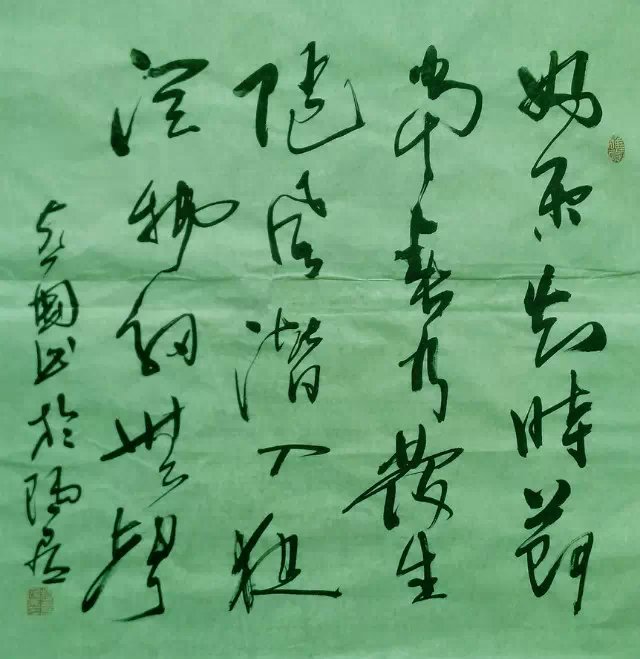 好雨知時節
當春乃發生
隨風潛入夜
潤物細無聲
國书於陋居